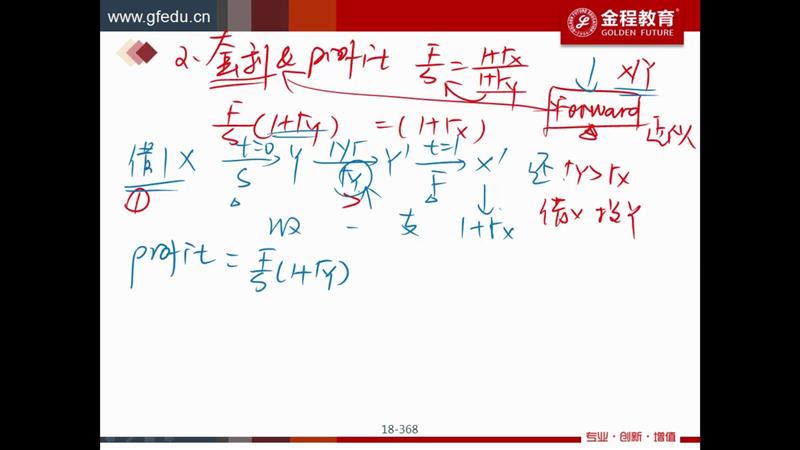 www.gfedu.cn
金程教育
GOLDEN FUTURE
2、套利 & profit F/S = 1+rx/1+ry
↓ X/Y
Forward
F/S (1+ry) = (1+rx)
借1X t=0 → Y 1yr → Y' t=1 → X' 还 ↑ry>rx
① S ry F ↓ 借X投Y
收 - 支 1+rx
profit = F/S (1+ry)
18-368
专业·创新·增值